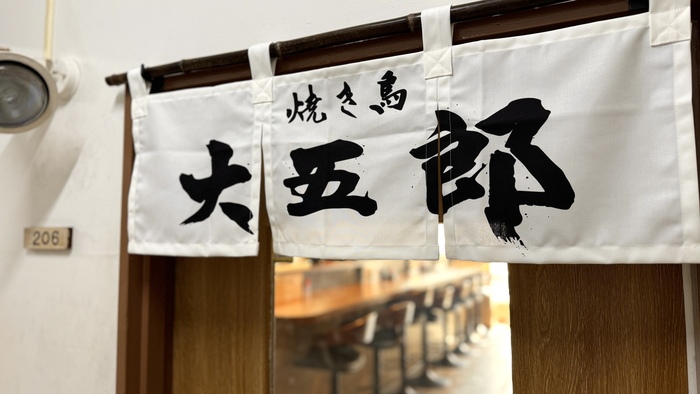 焼き鳥
大五郎
206